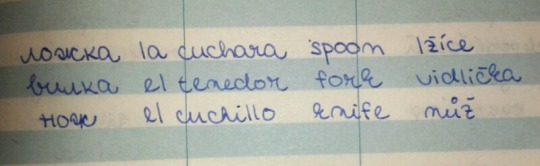 ложка la cuchara spoon lžíce
вилка el tenedor fork vidlička
нож el cuchillo knife nůž